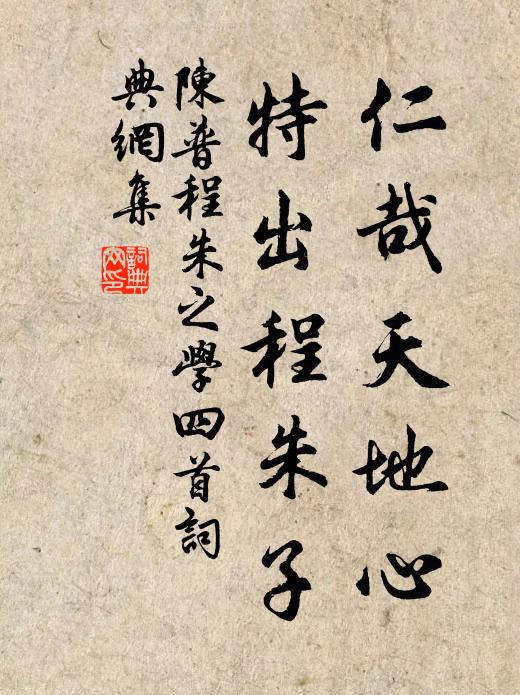 仁哉天地心
特出程朱子
陳普程朱之學四首詞
典網集
詞典